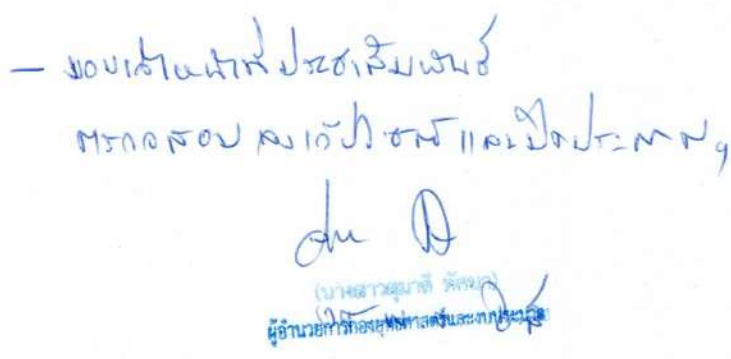 - มอบเจ้าหน้าที่ประชาสัมพันธ์
ตรวจสอบ ลงเว็ปไซต์ และปิดประกาศฯ
(นางสาวสุมาลี
ผู้อำนวยการกองยุทธศาสตร์และงบประมาณ